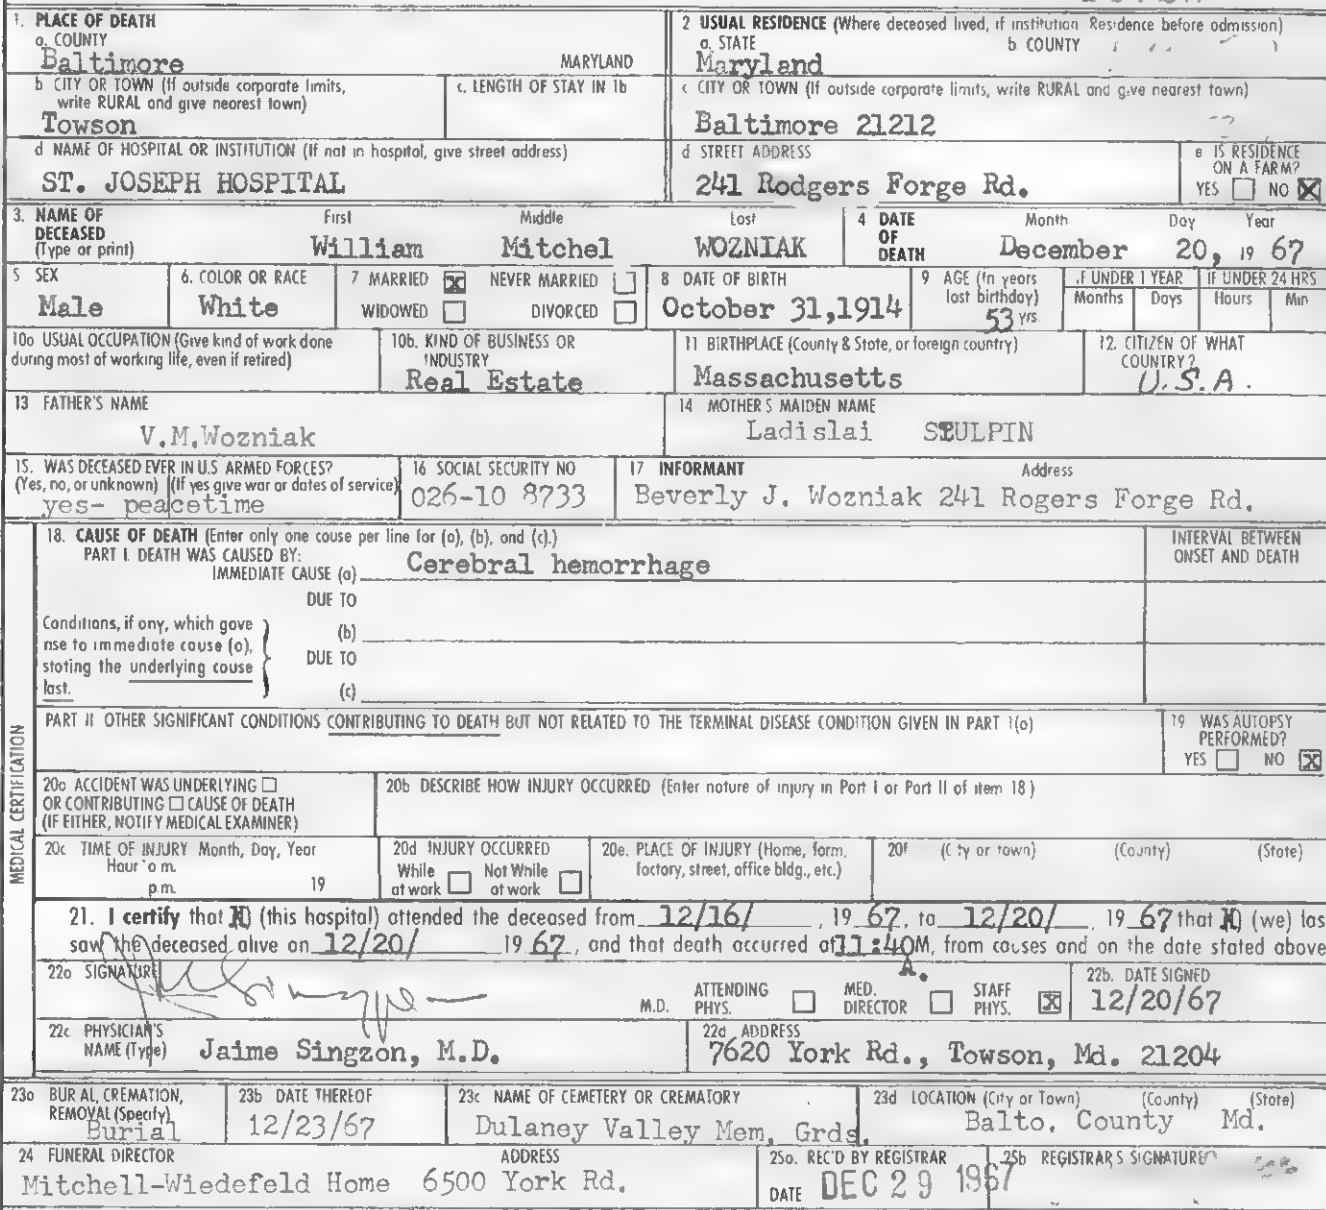 1. PLACE OF DEATH
a. COUNTY
Baltimore MARYLAND
2 USUAL RESIDENCE (Where deceased lived, if institution Residence before admission)
a. STATE b. COUNTY
Maryland
b CITY OR TOWN (If outside corporate limits, write RURAL and give nearest town)
Towson
c. LENGTH OF STAY IN 1b
c CITY OR TOWN (If outside corporate limits, write RURAL and give nearest town)
Baltimore 21212
d NAME OF HOSPITAL OR INSTITUTION (If not in hospital, give street address)
ST. JOSEPH HOSPITAL
d STREET ADDRESS
241 Rodgers Forge Rd.
e IS RESIDENCE ON A FARM?
YES NO X
3. NAME OF DECEASED (Type or print)
First Middle Last
William Mitchel WOZNIAK
4 DATE OF DEATH
Month Day Year
December 20, 19 67
5 SEX
Male
6. COLOR OR RACE
White
7 MARRIED X NEVER MARRIED
WIDOWED DIVORCED
8 DATE OF BIRTH
October 31,1914
9 AGE (In years last birthday)
53 yrs
IF UNDER 1 YEAR
Months Days
IF UNDER 24 HRS
Hours Min
10a USUAL OCCUPATION (Give kind of work done during most of working life, even if retired)
10b. KIND OF BUSINESS OR INDUSTRY
Real Estate
11 BIRTHPLACE (County & State, or foreign country)
Massachusetts
12. CITIZEN OF WHAT COUNTRY?
U.S.A.
13 FATHER'S NAME
V.M.Wozniak
14 MOTHER'S MAIDEN NAME
Ladislai
15. WAS DECEASED EVER IN U.S. ARMED FORCES?
(Yes, no, or unknown) (If yes give war or dates of service)
yes- peacetime
16 SOCIAL SECURITY NO
026-10 8733
17 INFORMANT Address
Beverly J. Wozniak 241 Rogers Forge Rd.
MEDICAL CERTIFICATION
18. CAUSE OF DEATH (Enter only one cause per line for (a), (b), and (c).)
PART I. DEATH WAS CAUSED BY:
IMMEDIATE CAUSE (a) Cerebral hemorrhage
INTERVAL BETWEEN ONSET AND DEATH
DUE TO
Conditions, if any, which gave rise to immediate cause (a), stating the underlying cause last.
(b)
DUE TO
(c)
PART II OTHER SIGNIFICANT CONDITIONS CONTRIBUTING TO DEATH BUT NOT RELATED TO THE TERMINAL DISEASE CONDITION GIVEN IN PART 1(a)
19 WAS AUTOPSY PERFORMED?
YES NO X
20a ACCIDENT WAS UNDERLYING
OR CONTRIBUTING CAUSE OF DEATH
(IF EITHER, NOTIFY MEDICAL EXAMINER)
20b DESCRIBE HOW INJURY OCCURRED (Enter nature of injury in Part I or Part II of item 18)
20c TIME OF INJURY Month, Day, Year
Hour a m.
p m. 19
20d INJURY OCCURRED
While at work Not While at work
20e. PLACE OF INJURY (Home, farm, factory, street, office bldg., etc.)
20f (City or town) (County) (State)
21. I certify that (this hospital) attended the deceased from 12/16/ 19 67, to 12/20/ 19 67 that (we) las
saw the deceased alive on 12/20/ 19 67, and that death occurred at 11:40M, from causes and on the date stated above
A.
22a SIGNATURE
M.D. ATTENDING PHYS. MED. DIRECTOR STAFF PHYS. X
22b. DATE SIGNED
12/20/67
22c PHYSICIAN'S NAME (Type) Jaime Singzon, M.D.
22d ADDRESS
7620 York Rd., Towson, Md. 21204
23a BURIAL, CREMATION, REMOVAL (Specify)
Burial
23b DATE THEREOF
12/23/67
23c NAME OF CEMETERY OR CREMATORY
Dulaney Valley Mem. Grds.
23d LOCATION (City or Town) (County) (State)
Balto. County Md.
24 FUNERAL DIRECTOR ADDRESS
Mitchell-Wiedefeld Home 6500 York Rd.
25a. REC'D BY REGISTRAR
DATE DEC 29 1967
25b REGISTRAR'S SIGNATURE